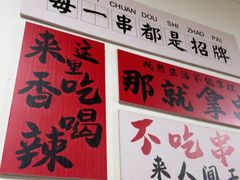 CHUAN DOU SHI ZHAO PAI
每一串都是招牌
来这里
吃香
喝辣
既然生活不能拿捏
那就拿
不吃串
来人间